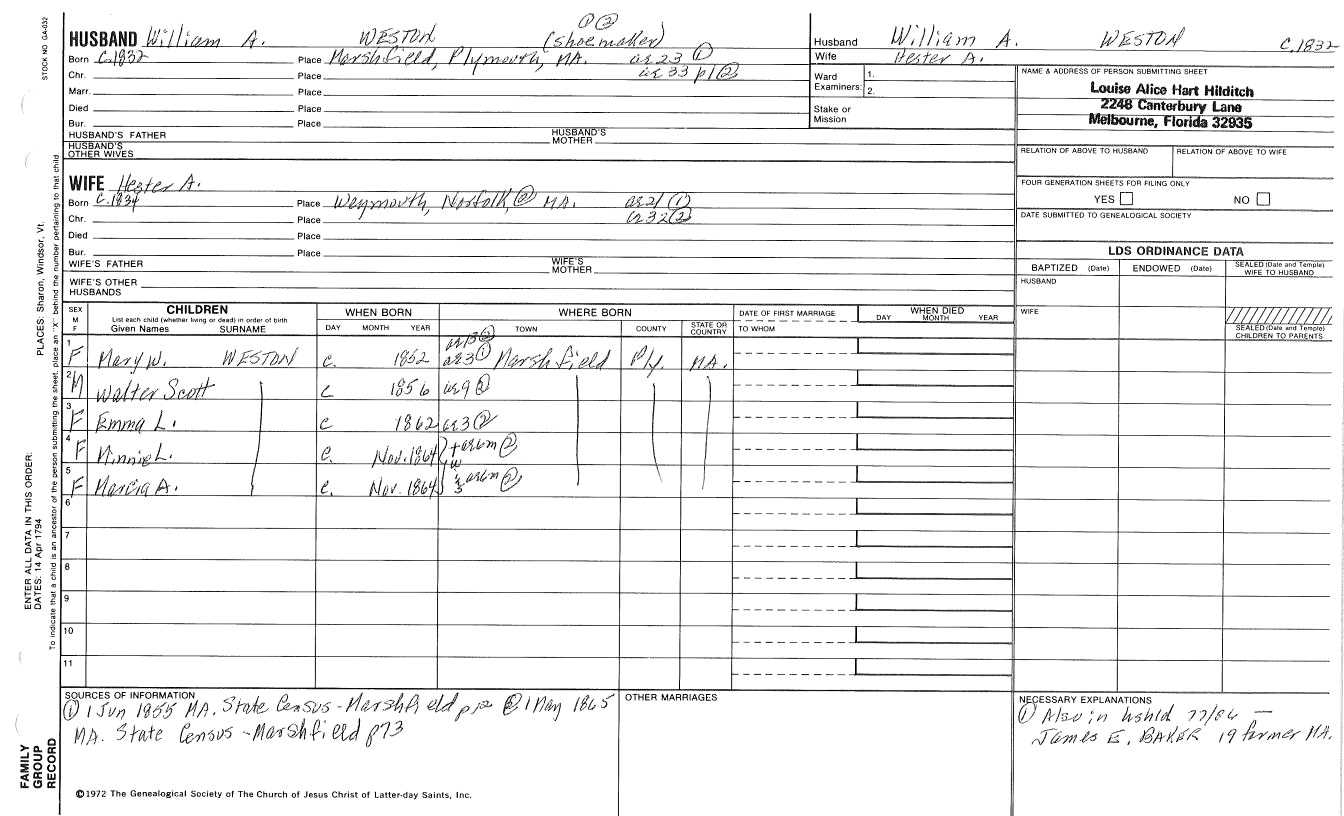 STOCK NO. GA-032
① ②
HUSBAND William A. WESTON (shoemaker)
Born c.1832 Place Marshfield, Plymouth, MA. ae 23 ①
Chr. Place ae 33 p1 ②
Marr. Place
Died Place
Bur. Place
HUSBAND'S FATHER HUSBAND'S MOTHER
HUSBAND'S OTHER WIVES
WIFE Hester A.
Born c.1834 Place Weymouth, Norfolk, ② MA. ae 21 ①
Chr. Place ae 32 ②
Died Place
Bur. Place
WIFE'S FATHER WIFE'S MOTHER
WIFE'S OTHER HUSBANDS
Husband William A. WESTON c.1832
Wife Hester A.
Ward Examiners: 1.
2.
Stake or Mission
NAME & ADDRESS OF PERSON SUBMITTING SHEET
Louise Alice Hart Hilditch
2248 Canterbury Lane
Melbourne, Florida 32935
RELATION OF ABOVE TO HUSBAND RELATION OF ABOVE TO WIFE
FOUR GENERATION SHEETS FOR FILING ONLY
YES NO
DATE SUBMITTED TO GENEALOGICAL SOCIETY
LDS ORDINANCE DATA
BAPTIZED (Date) ENDOWED (Date) SEALED (Date and Temple) WIFE TO HUSBAND
HUSBAND
WIFE
SEALED (Date and Temple) CHILDREN TO PARENTS
SEX M F
CHILDREN
List each child (whether living or dead) in order of birth
Given Names SURNAME
WHEN BORN
DAY MONTH YEAR
WHERE BORN
TOWN COUNTY STATE OR COUNTRY
DATE OF FIRST MARRIAGE
TO WHOM
WHEN DIED
DAY MONTH YEAR
1 F Mary W. WESTON c. 1852 ae 13 ② ae 3 ① Marshfield Ply. MA.
2 M Walter Scott c 1856 ae 9 ②
3 F Emma L. c 1862 ae 3 ②
4 F Minnie L. c. Nov. 1864 ae 6m ②
5 F Marcia A. c. Nov. 1864 ae 6m ②
6
7
8
9
10
11
SOURCES OF INFORMATION
① 1 Jun 1855 MA. State Census - Marshfield ② 1 May 1865
MA. State Census - Marshfield p73
OTHER MARRIAGES
NECESSARY EXPLANATIONS
① Also in hshld 77/86 —
James E. BAKER 19 farmer MA.
©1972 The Genealogical Society of The Church of Jesus Christ of Latter-day Saints, Inc.
FAMILY GROUP RECORD
ENTER ALL DATA IN THIS ORDER:
DATES: 14 Apr 1794
PLACES: Sharon, Windsor, Vt.
To indicate that a child is an ancestor of the person submitting the sheet, place an "X" behind the number pertaining to that child